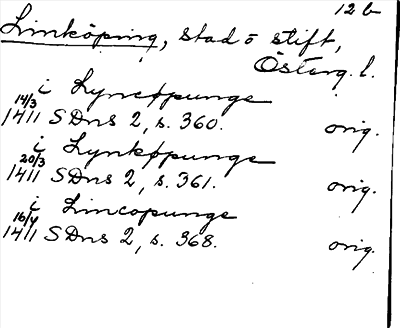 12 b
Linköping, stad o stift,
Österg. l.
i Lyncøpunge
14/3 1411 SDns 2, s. 360. orig.
i Lynkøpunge
20/3 1411 SDns 2, s. 361. orig.
i Lincopunge
16/4 1411 SDns 2, s. 368. orig.